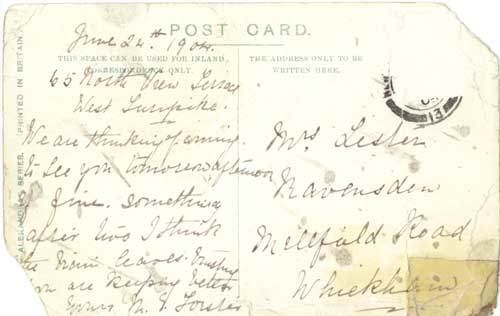 POST CARD.
THIS SPACE CAN BE USED FOR INLAND
CORRESPONDENCE ONLY.
THE ADDRESS ONLY TO BE
WRITTEN HERE.
PRINTED IN BRITAIN.
SERIES.
June 24th 1904.
65 North View Terrace
West
We are thinking of coming
to see you tomorrow afternoon
if fine. Something
after two I think
the train leaves. Trusting
you are keeping better
Yours M. Forster
Mrs Lister
Ravensden
Millfield Road
Whickham